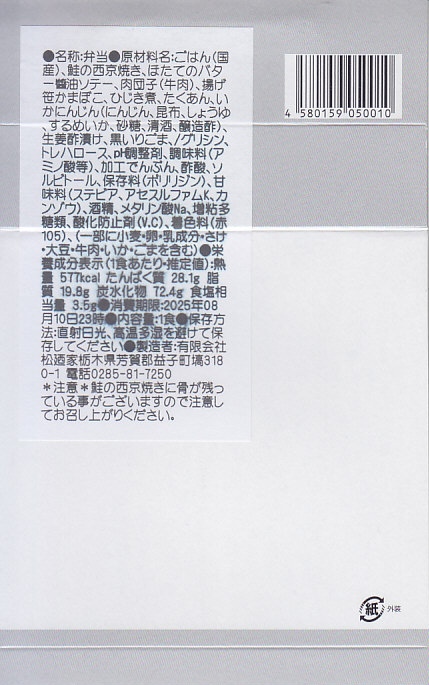 ●名称:弁当●原材料名:ごはん(国
産)、鮭の西京焼き、ほたてのバタ
ー醬油ソテー、肉団子(牛肉)、揚げ
笹かまぼこ、ひじき煮、たくあん、い
かにんじん(にんじん、昆布、しょうゆ
、するめいか、砂糖、清酒、醸造酢)、
生姜酢漬け、黒いりごま、/グリシン、
トレハロース、pH調整剤、調味料(ア
ミノ酸等)、加工でんぷん、酢酸、ソ
ルビトール、保存料(ポリリジン)、甘
味料(ステビア、アセスルファムK、カ
ンゾウ)、酒精、メタリン酸Na、増粘多
糖類、酸化防止剤(V.C)、着色料(赤
105)、(一部に小麦・卵・乳成分・さけ
・大豆・牛肉・いか・ごまを含む)●栄
養成分表示(1食あたり・推定値):熱
量 577kcal たんぱく質 28.1g 脂
質 19.8g 炭水化物 72.4g 食塩相
当量 3.5g●消費期限:2025年08
月10日23時●内容量:1食●保存方
法:直射日光、高温多湿を避けて保
存してください●製造者:有限会社
松廼家栃木県芳賀郡益子町塙318
0-1 電話0285-81-7250
＊注意＊鮭の西京焼きに骨が残っ
ている事がございますので注意し
てお召し上がりください。
4 580159 050010
紙 外装